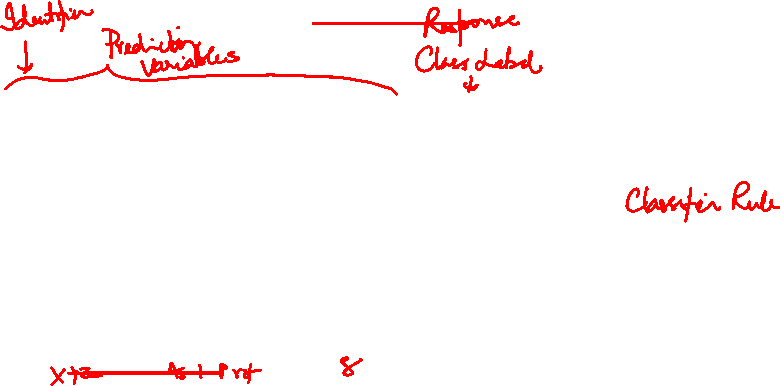 Identifier
Prediction
Variables
Response
Class Label
Classifier Rule
8